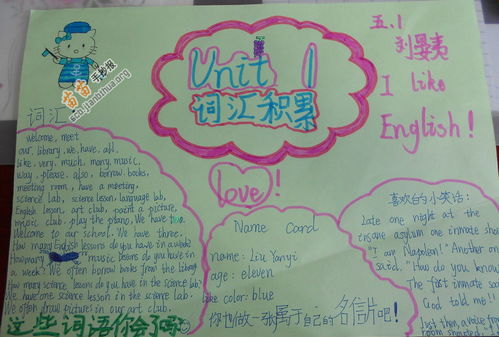 Unit 1
词汇积累
五.1
刘晏夷
I like
English!
苗苗手抄报
词汇
welcome, meet
our, library, we, have, all,
like, very, much, many, music,
way, please, also, borrow, books,
meeting room, have a meeting,
science lab, science lesson, language lab,
English lesson, art club, paint a picture,
music club, play the piano, We have two
Welcome to our school. We have three.
How many English lessons do you have in a week?
How many music lessons do you have in
a week? We often borrow books from the library
How many science lessons do you have in the science lab?
We have one science lesson in the science lab.
We often draw pictures in our art club.
这些词语你会了吗?
love!
Name Card
name: Liu Yanyi
age: eleven
like color: blue
你也做一张属于自己的名信片吧!
喜欢的小笑话:
Late one night at the
insane asylum one inmate shou
"I am Napoleon!" Another on
said. "How do you know
The first inmate said
God told me!
Just then, a voice from